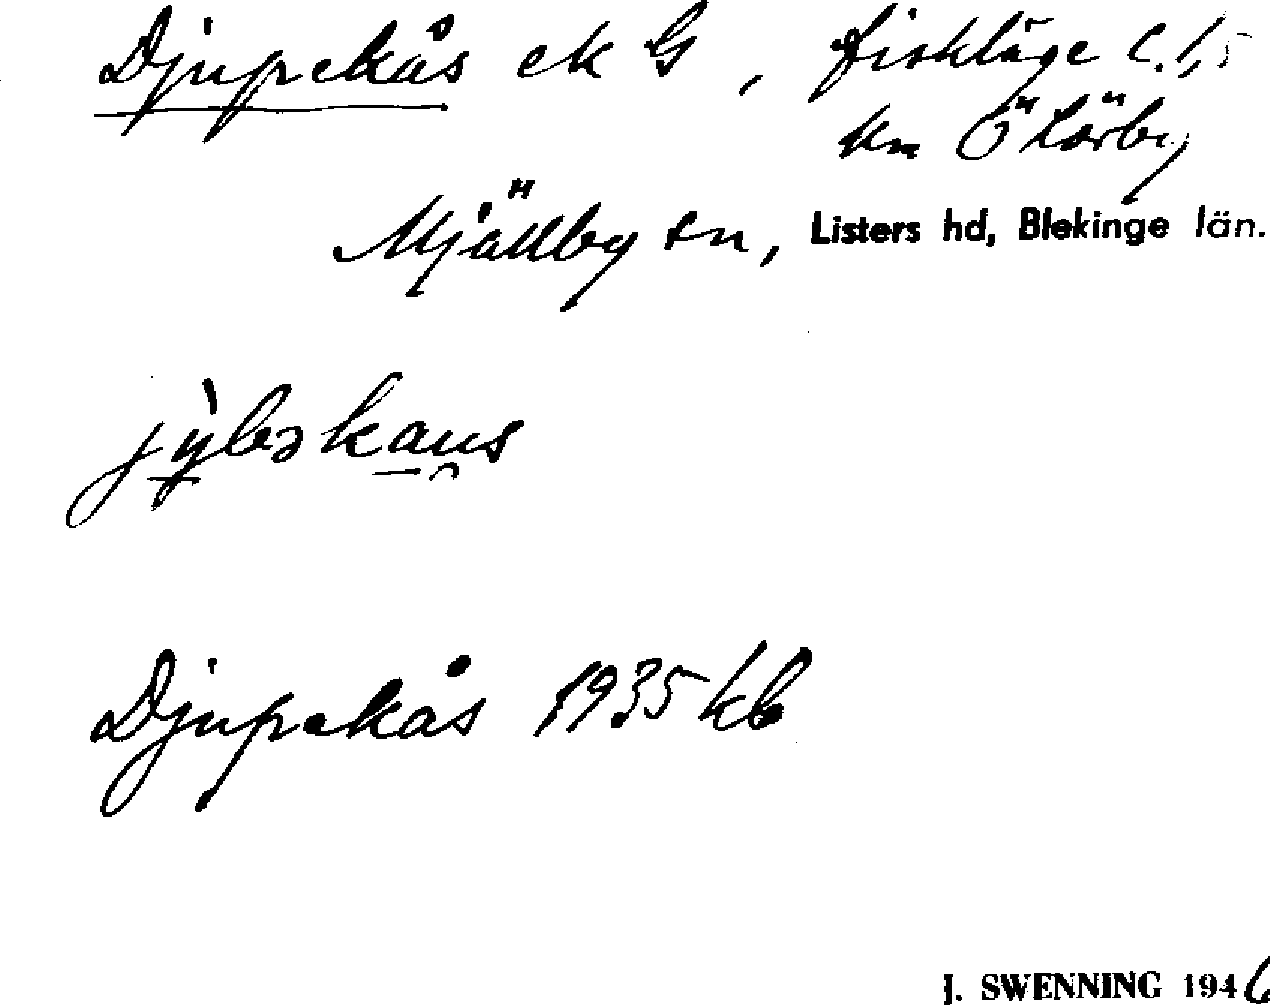 Djupekås ek G, fiskläge c. 1,5
km Ö Lörby
Mjällby sn, Listers hd, Blekinge län.
jýbəkaus
Djupekås 1935 kb
J. SWENNING 1946